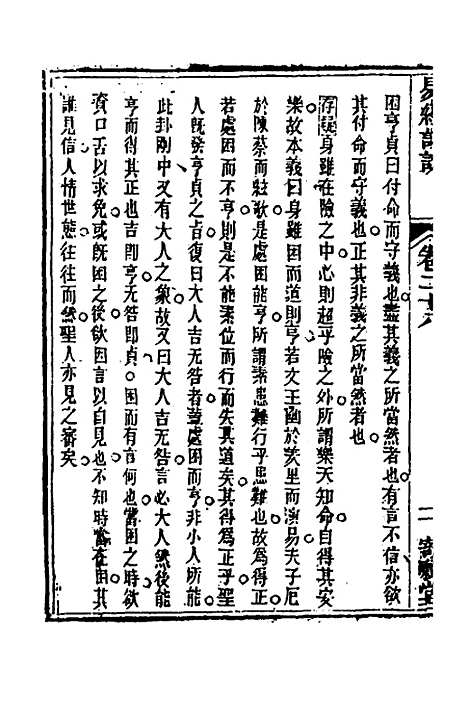 易經詳說 卷二十八 二 寄願堂
困亨貞曰付命而守義也盡其義之所當然者也有言不信亦欲
其付命而守義也正其非義之所當然者也
存疑身雖在險之中心則超乎險之外所謂樂天知命自得其安
樂故本義曰身雖困而道則亨若文王囚於羑里而演易夫子厄
於陳蔡而絃歌是處困能亨所謂素患難行乎患難也故為得正
若處困而不亨則是不能素位而行而失其道矣其得為正乎聖
人既發亨貞之旨復曰大人吉无咎者葢處困而亨非小人所能
此卦剛中又有大人之象故又曰大人吉无咎言必大人然後能
亨而得其正也吉即亨无咎即貞○困而有言何也當困之時欲
資口舌以求免或既困之後欲因言以自見也不知時當在困其
誰見信人情世態往往而然聖人亦見之審矣